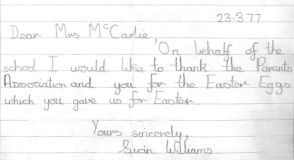 23-3-77
Dear Mrs McCartie
"On behalf of the
school I would like to thank the Parents
Association and you for the Easter Eggs
which you gave us for Easter.
Yours sincerely,
Williams.